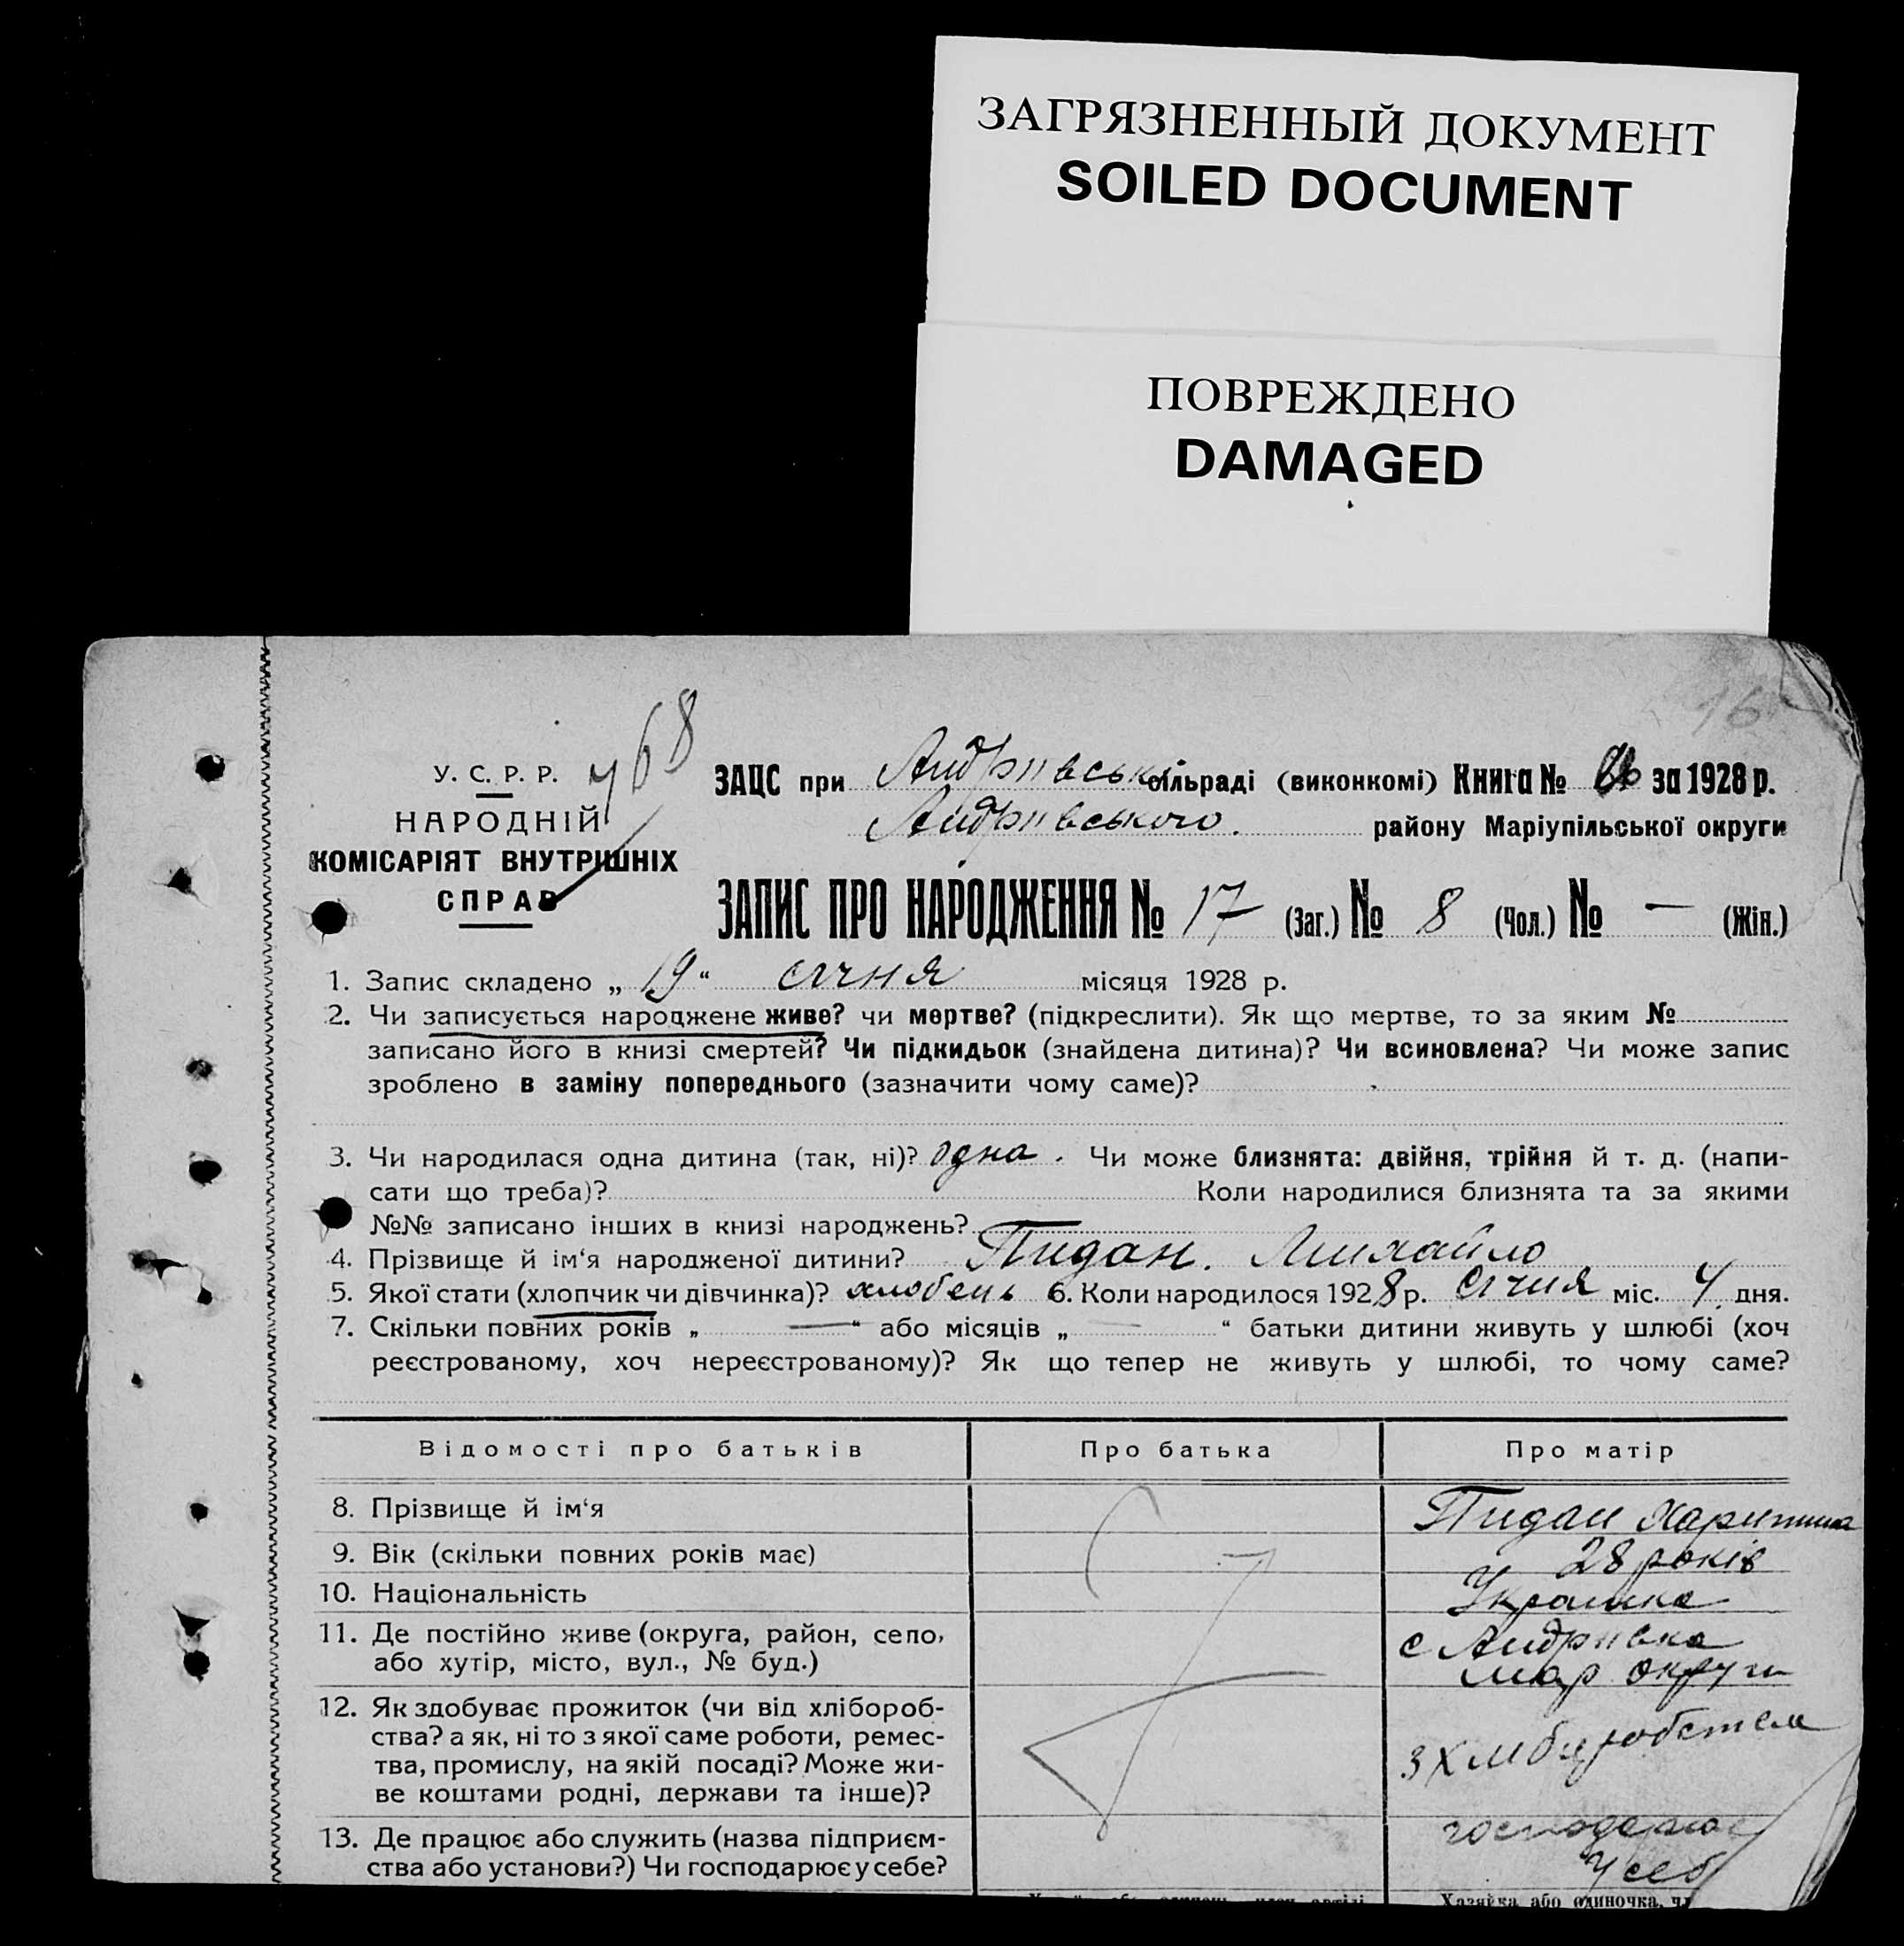 ЗАГРЯЗНЕННЫЙ ДОКУМЕНТ
SOILED DOCUMENT
ПОВРЕЖДЕНО
DAMAGED
16
768
У. С. Р. Р.
НАРОДНІЙ
КОМІСАРІЯТ ВНУТРІШНІХ
СПРАВ
ЗАЦС при Андріівській сільраді (виконкомі) Книга № за 1928 р.
Андріівського району Маріупільської округи
ЗАПИС ПРО НАРОДЖЕННЯ № 17 (Заг.) № 8 (Чол.) № — (Жін.)
1. Запис складено „ 19 “ січня місяця 1928 р.
2. Чи записується народжене живе? чи мертве? (підкреслити). Як що мертве, то за яким №
записано його в книзі смертей? Чи підкидьок (знайдена дитина)? Чи всиновлена? Чи може запис
зроблено в заміну попереднього (зазначити чому саме)?
3. Чи народилася одна дитина (так, ні)? одна. Чи може близнята: двійня, трійня й т. д. (напи-
сати що треба)? Коли народилися близнята та за якими
№№ записано інших в книзі народжень?
4. Прізвище й ім‘я народженої дитини? Пидан. Михайло
5. Якої стати (хлопчик чи дівчинка)? хлобець 6. Коли народилося 1928 р. січня міс. 4 дня.
7. Скільки повних років „ — “ або місяців „ — “ батьки дитини живуть у шлюбі (хоч
реєстрованому, хоч нереєстрованому)? Як що тепер не живуть у шлюбі, то чому саме?
Відомості про батьків Про батька Про матір
8. Прізвище й ім‘я Пидан Харитина
9. Вік (скільки повних років має) 28 років
10. Національність Украинка
11. Де постійно живе (округа, район, село, с Андріівка
або хутір, місто, вул., № буд.) мар округи
12. Як здобуває прожиток (чи від хлібороб-
ства? а як, ні то з якої саме роботи, ремес-
тва, промислу, на якій посаді? Може жи-
ве коштами родні, держави та інше)?
13. Де працює або служить (назва підприєм-
ства або установи?) Чи господарює у себе? у себ
Хазяйка або одиночка, чл